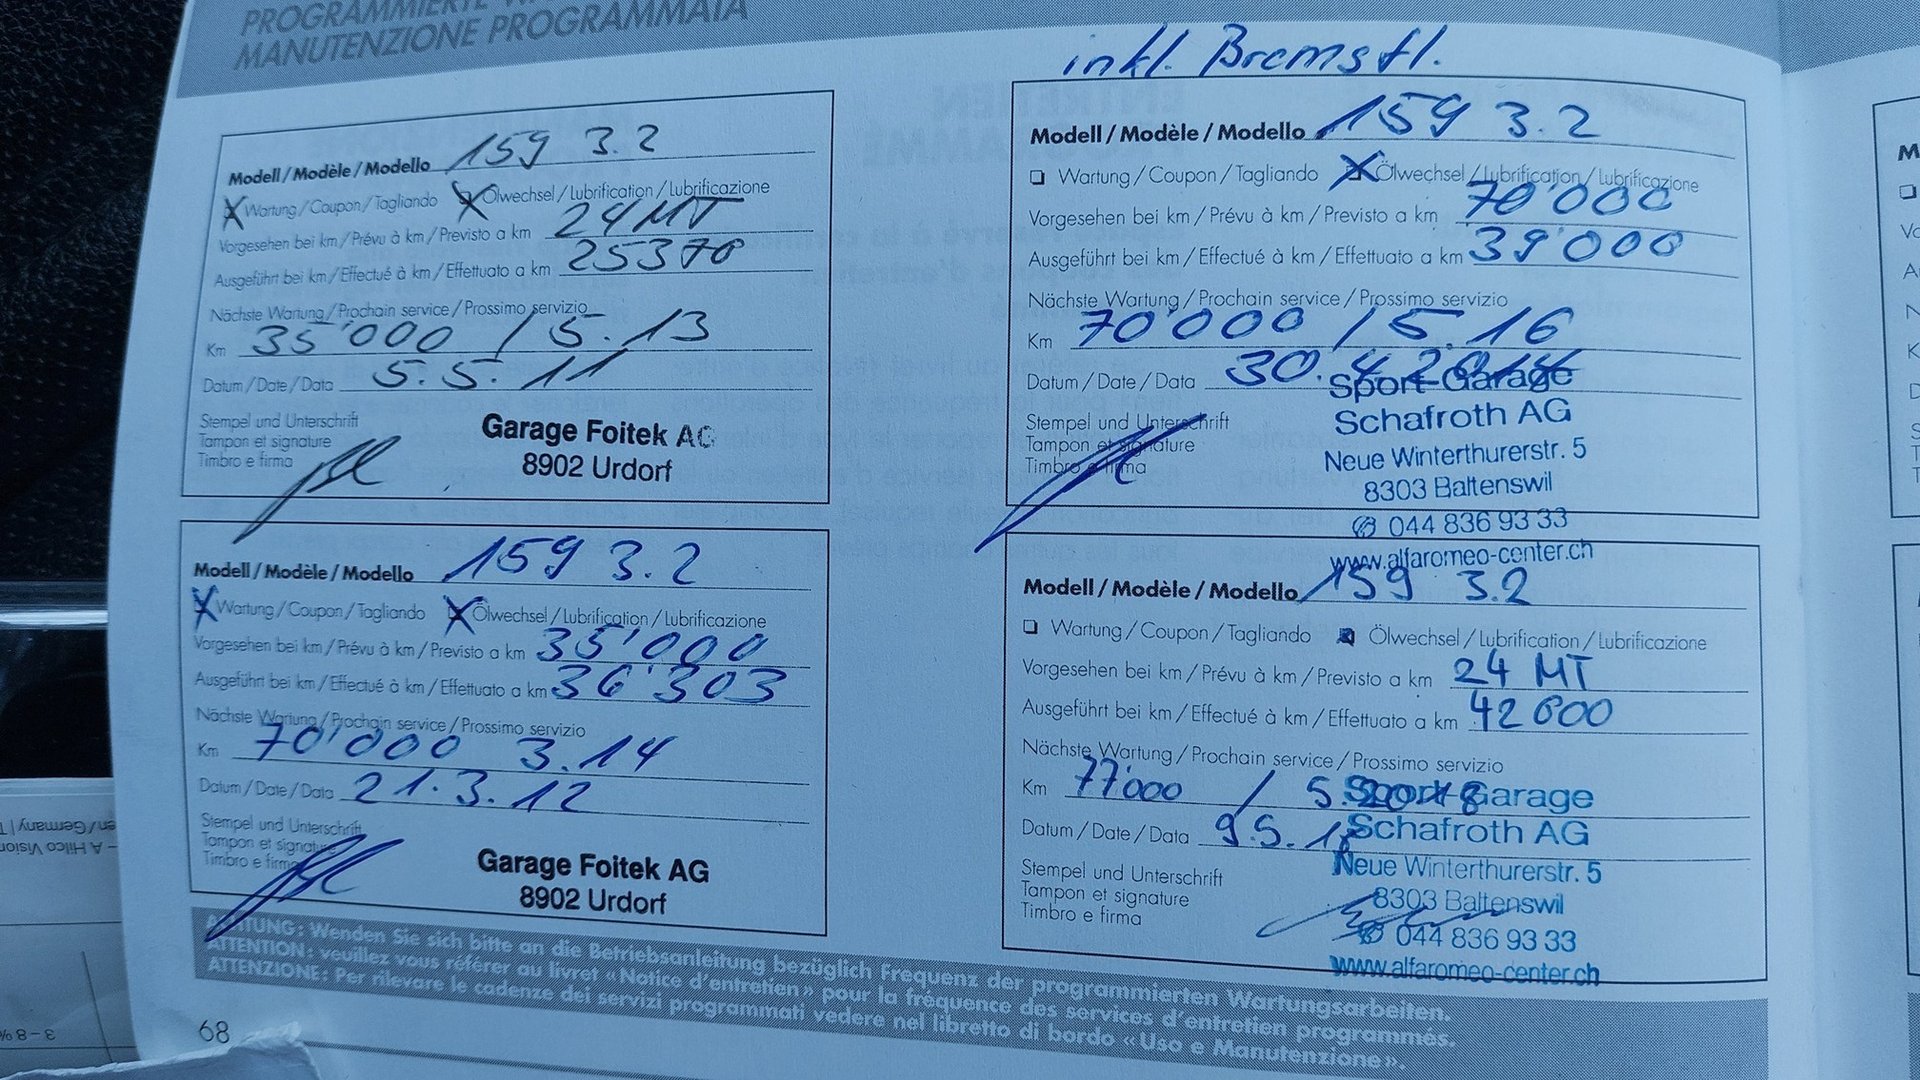 PROGRAMMIERTE
MANUTENZIONE PROGRAMMATA
Modell / Modèle / Modello 159 3.2
Wartung / Coupon / Tagliando Ölwechsel / Lubrification / Lubrificazione
Vorgesehen bei km / Prévu à km / Previsto a km 24 MT
Ausgeführt bei km / Effectué à km / Effettuato a km 25370
Nächste Wartung / Prochain service / Prossimo servizio
Km 35'000 / 5.13
Datum / Date / Data 5.5.11
Stempel und Unterschrift
Tampon et signature
Timbro e firma
Garage Foitek AG
8902 Urdorf
Modell / Modèle / Modello 159 3.2
Wartung / Coupon / Tagliando Ölwechsel / Lubrification / Lubrificazione
Vorgesehen bei km / Prévu à km / Previsto a km 35'000
Ausgeführt bei km / Effectué à km / Effettuato a km 36'303
Nächste Wartung / Prochain service / Prossimo servizio
Km 70'000 3.14
Datum / Date / Data 21.3.12
Stempel und Unterschrift
Tampon et signature
Timbro e firma
Garage Foitek AG
8902 Urdorf
inkl. Bremsfl.
Modell / Modèle / Modello 159 3.2
Wartung / Coupon / Tagliando Ölwechsel / Lubrification / Lubrificazione
Vorgesehen bei km / Prévu à km / Previsto a km 70'000
Ausgeführt bei km / Effectué à km / Effettuato a km 39'000
Nächste Wartung / Prochain service / Prossimo servizio
Km 70'000 / 5.16
Datum / Date / Data 30.4.2014
Stempel und Unterschrift
Tampon et signature
Timbro e firma
Sport-Garage
Schafroth AG
Neue Winterthurerstr. 5
8303 Baltenswil
✆ 044 836 93 33
www.alfaromeo-center.ch
Modell / Modèle / Modello 159 3.2
Wartung / Coupon / Tagliando Ölwechsel / Lubrification / Lubrificazione
Vorgesehen bei km / Prévu à km / Previsto a km 24 MT
Ausgeführt bei km / Effectué à km / Effettuato a km 42600
Nächste Wartung / Prochain service / Prossimo servizio
Km 77'000 / 5.2018
Datum / Date / Data
Stempel und Unterschrift
Tampon et signature
Timbro e firma
Sport-Garage
Schafroth AG
Neue Winterthurerstr. 5
8303 Baltenswil
✆ 044 836 93 33
www.alfaromeo-center.ch
ACHTUNG: Wenden Sie sich bitte an die Betriebsanleitung bezüglich Frequenz der programmierten Wartungsarbeiten.
ATTENTION: veuillez vous référer au livret «Notice d'entretien» pour la fréquence des services d'entretien programmés.
ATTENZIONE: Per rilevare le cadenze dei servizi programmati vedere nel libretto di bordo «Uso e Manutenzione».
68